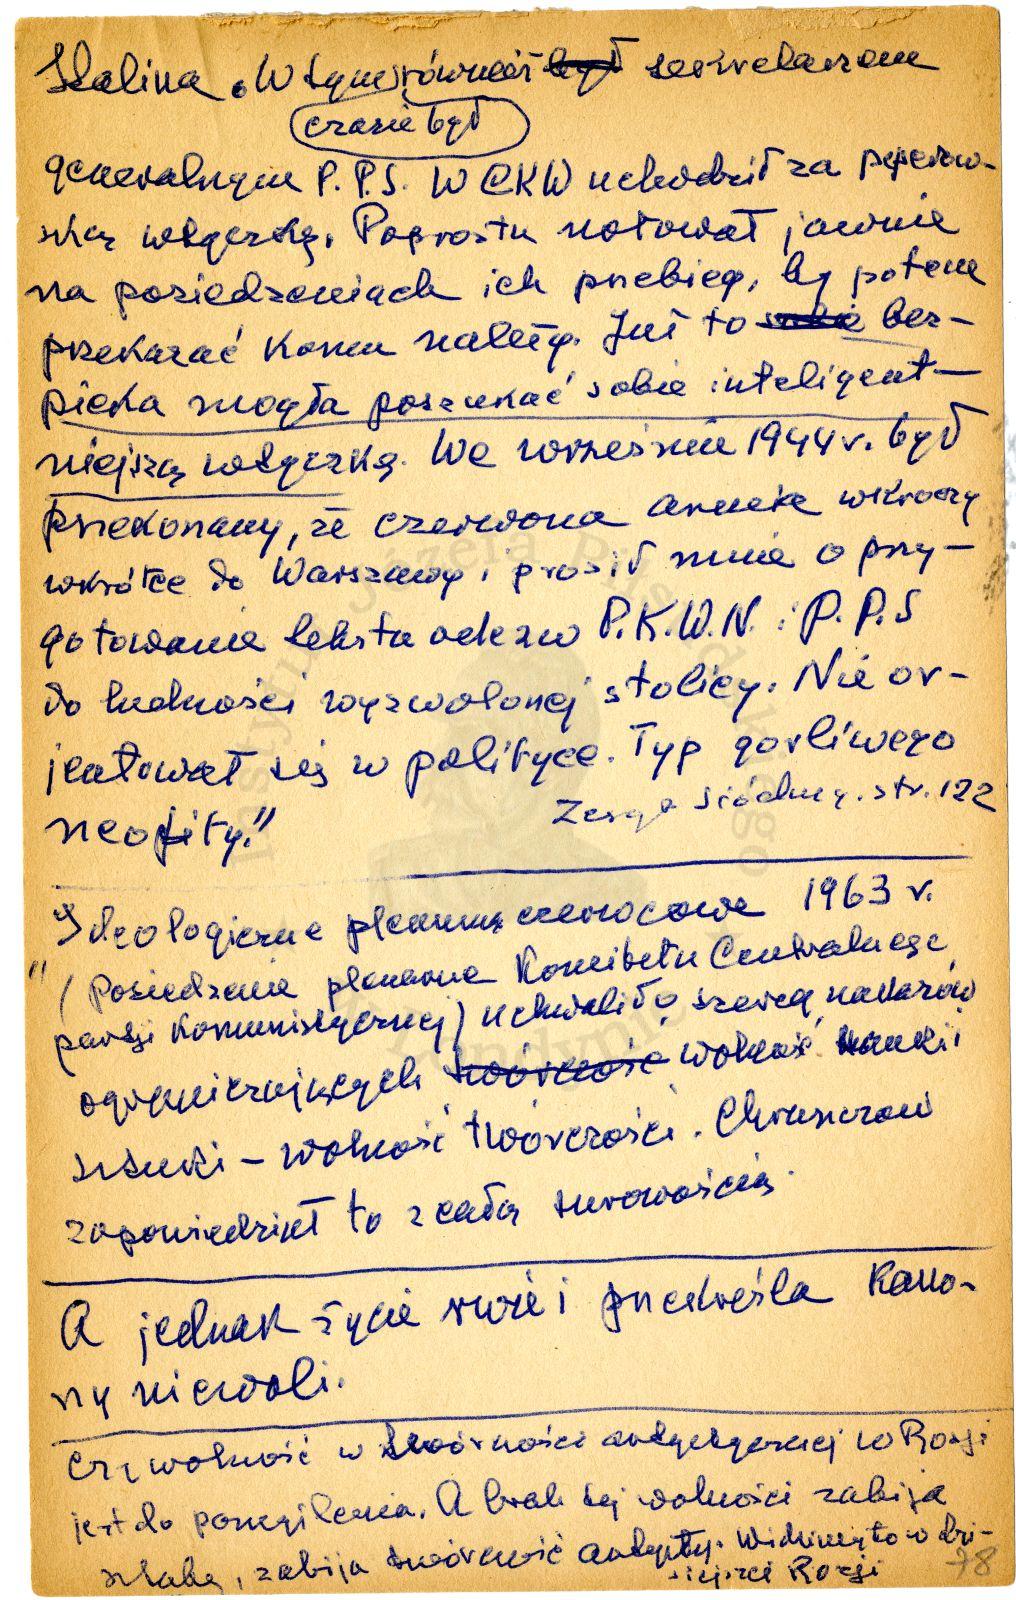 Stalina. W tym również był sekretarzem
czasie był
generalnym P.P.S. W CKW uchodził za peperow-
ską wtyczkę. Poprostu notował jawnie
na posiedzeniach ich przebieg, by potem
przekazać komu należy. Już to bez-
pieka mogła poszukać sobie inteligent-
niejszą wtyczkę. We wrześniu 1944 r. był
przekonany, że czerwona armia wkroczy
wkrótce do Warszawy i prosił mnie o przy-
gotowanie tekstu odezw P.K.W.N. i P.P.S
do ludności wyzwolonej stolicy. Nie or-
jentował się w polityce. Typ gorliwego
neofity."
Zesz. siódmy. str. 122
"Ideologiczne plenum czerwcowe 1963 r.
(posiedzenie plenarne Komitetu Centralnego
partji komunistycznej) uchwaliło szereg nakazów
ograniczających twórczość wolność nauki i
sztuki – wolność twórczości. Chruszczow
zapowiedział to z całą surowością.
A jednak życie rwie i przekreśla kano-
ny niewoli.
Czy wolność w twórczości artystycznej w Rosji
jest do pomyślenia. A brak tej wolności zabija
sztukę, zabija twórczość artysty. Widzimy to w dzi-
siejszej Rosji
78
Instytut Józefa Piłsudskiego
w Londynie